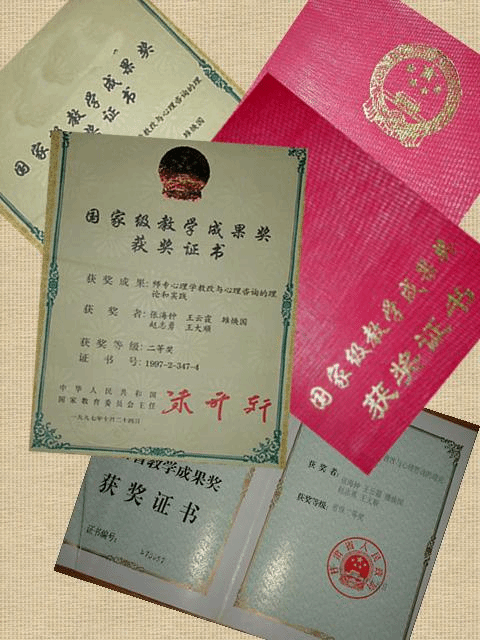 国家级教学成果奖
获奖证书
教改与心理咨询的理
雒焕国
国家级教学成果奖
获奖证书
获奖成果:师专心理学教改与心理咨询的理
论和实践
获奖者:张海钟 王云霞 雒焕国
赵志勇 王大顺
获奖等级:二等奖
证书号:1997-2-347-4
中华人民共和国
国家教育委员会主任
朱开轩
一九九七年十月二十四日
国家级教学成果奖
获奖证书
教学成果奖
获奖证书
证书编号:
获奖者:张海钟 王云霞 雒焕国
赵志勇 王大顺
获奖等级:省级二等奖
甘肃省人民政府